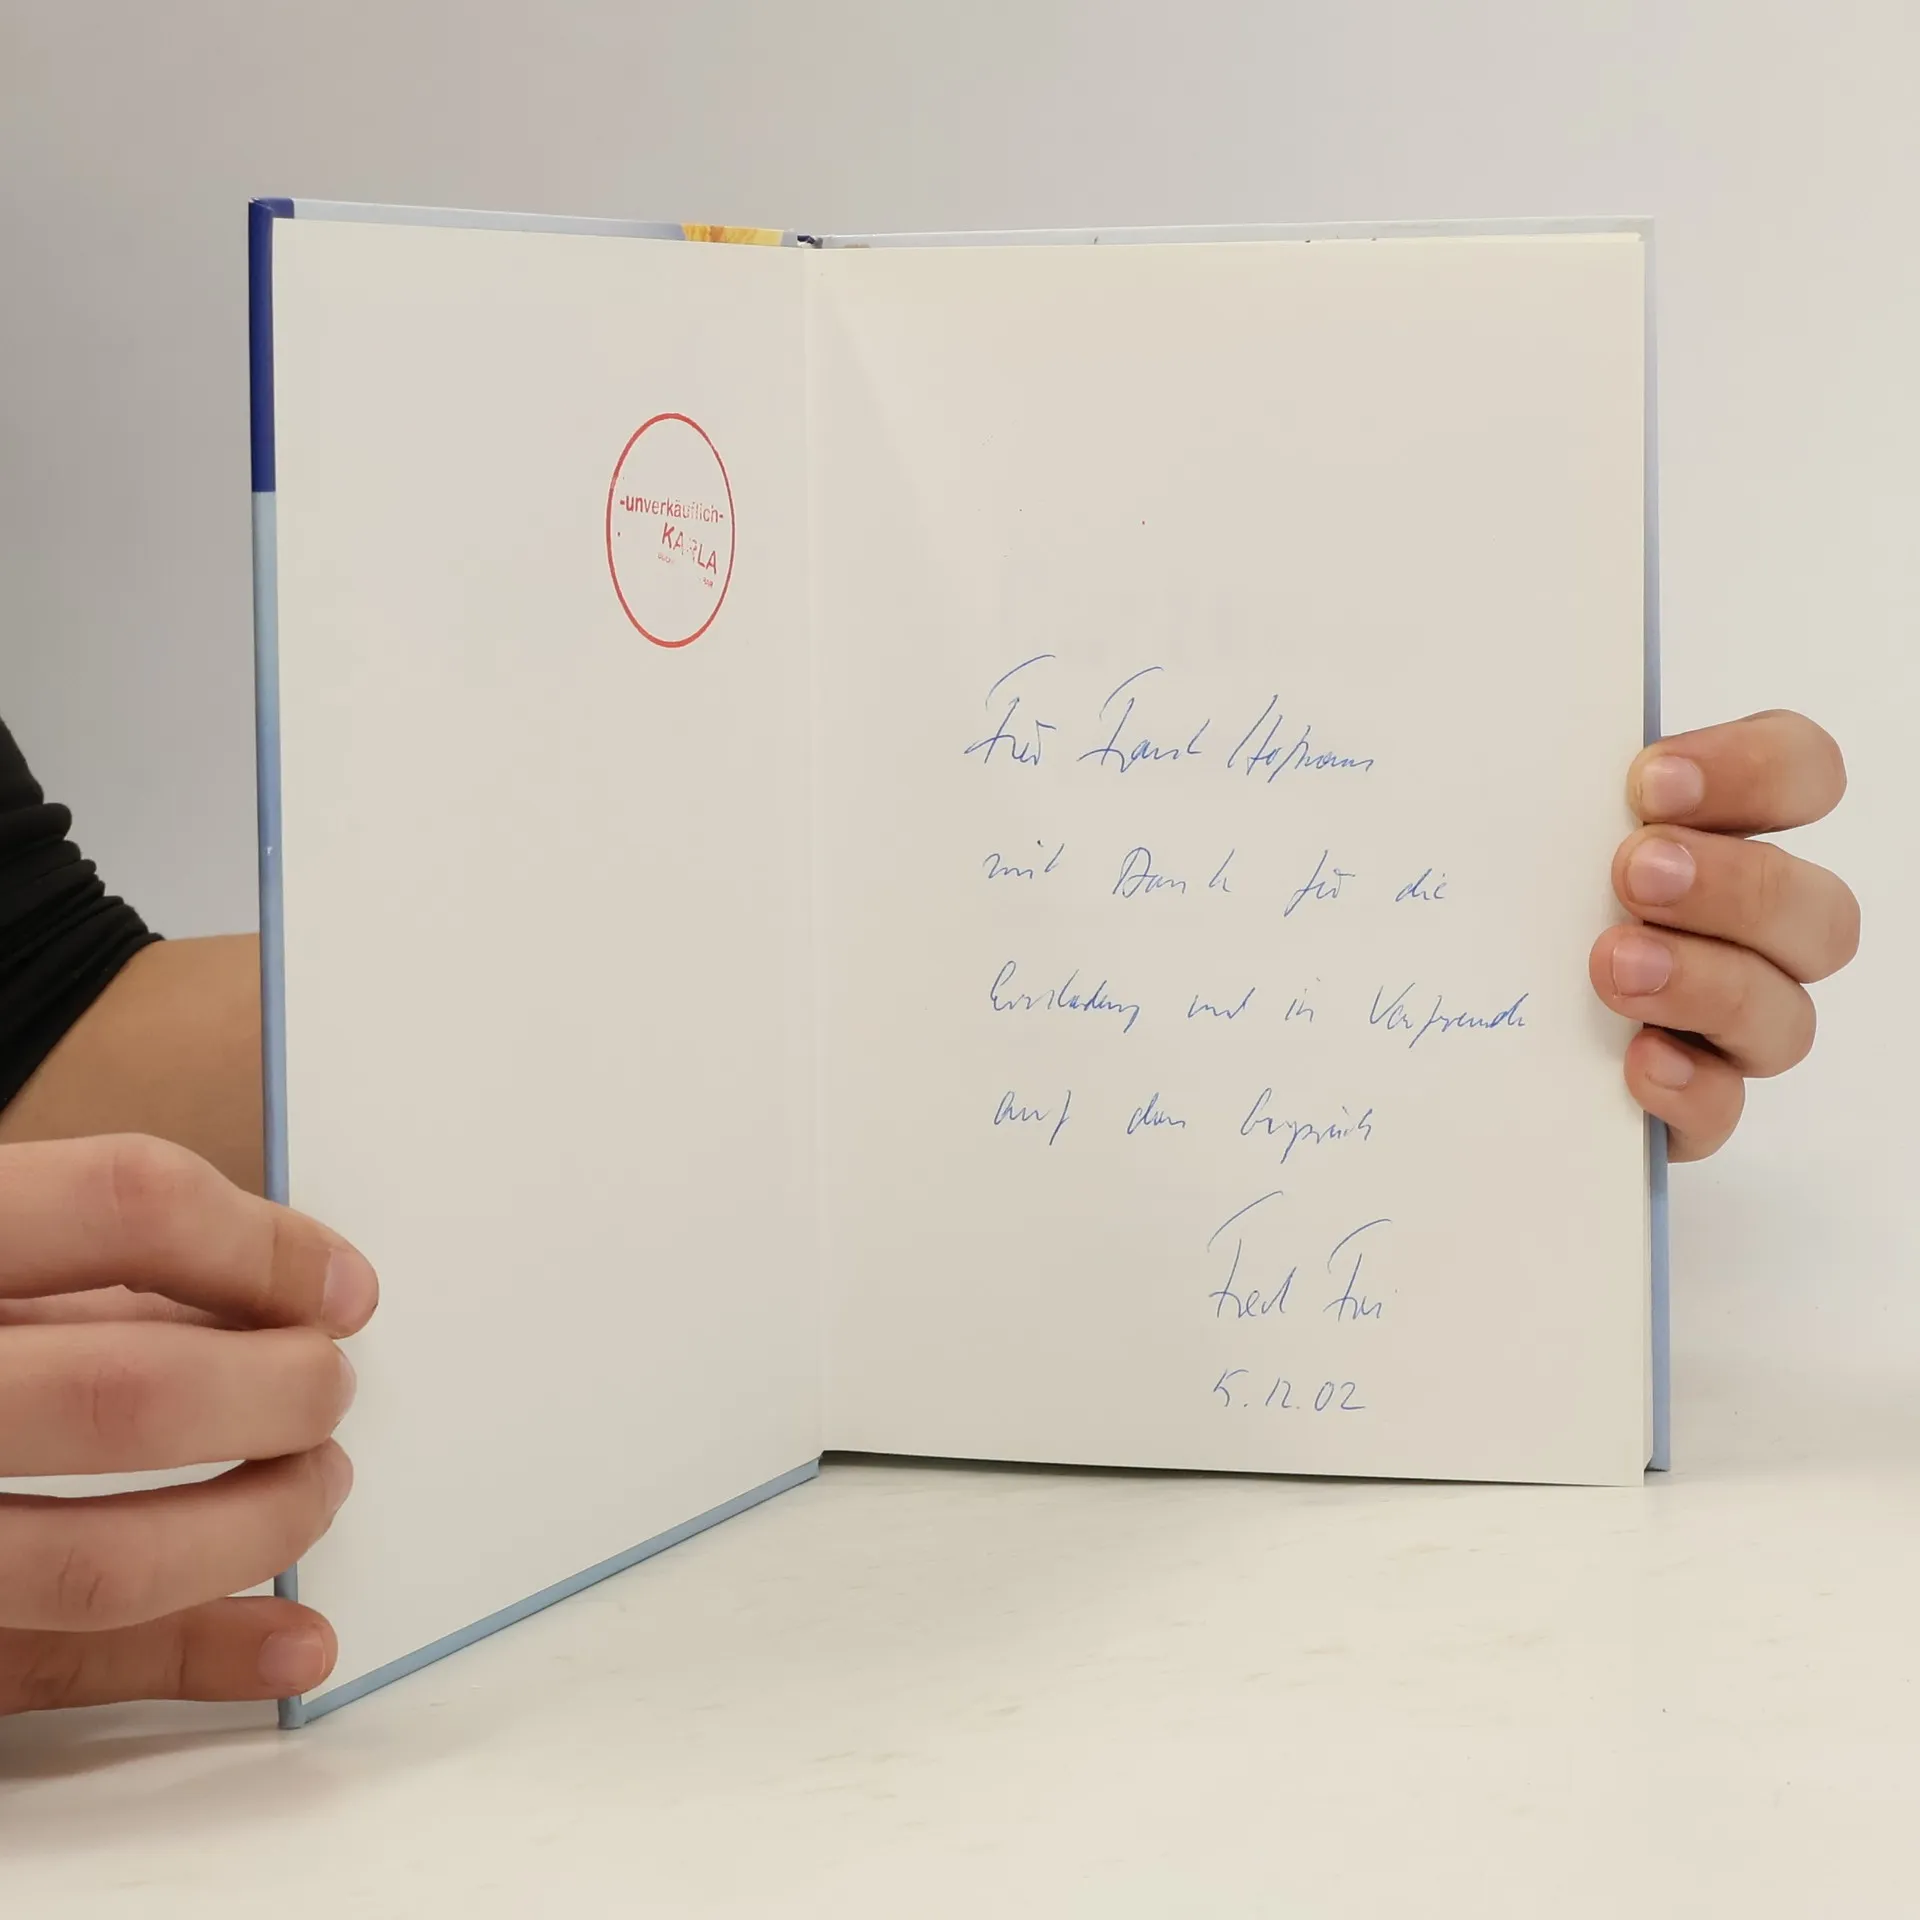 -unverkäuflich-
KARLA
Für Frank Hofmann
mit Dank für die
Einladung und in Vorfreude
auf das Gespräch
Fred
5.12.02